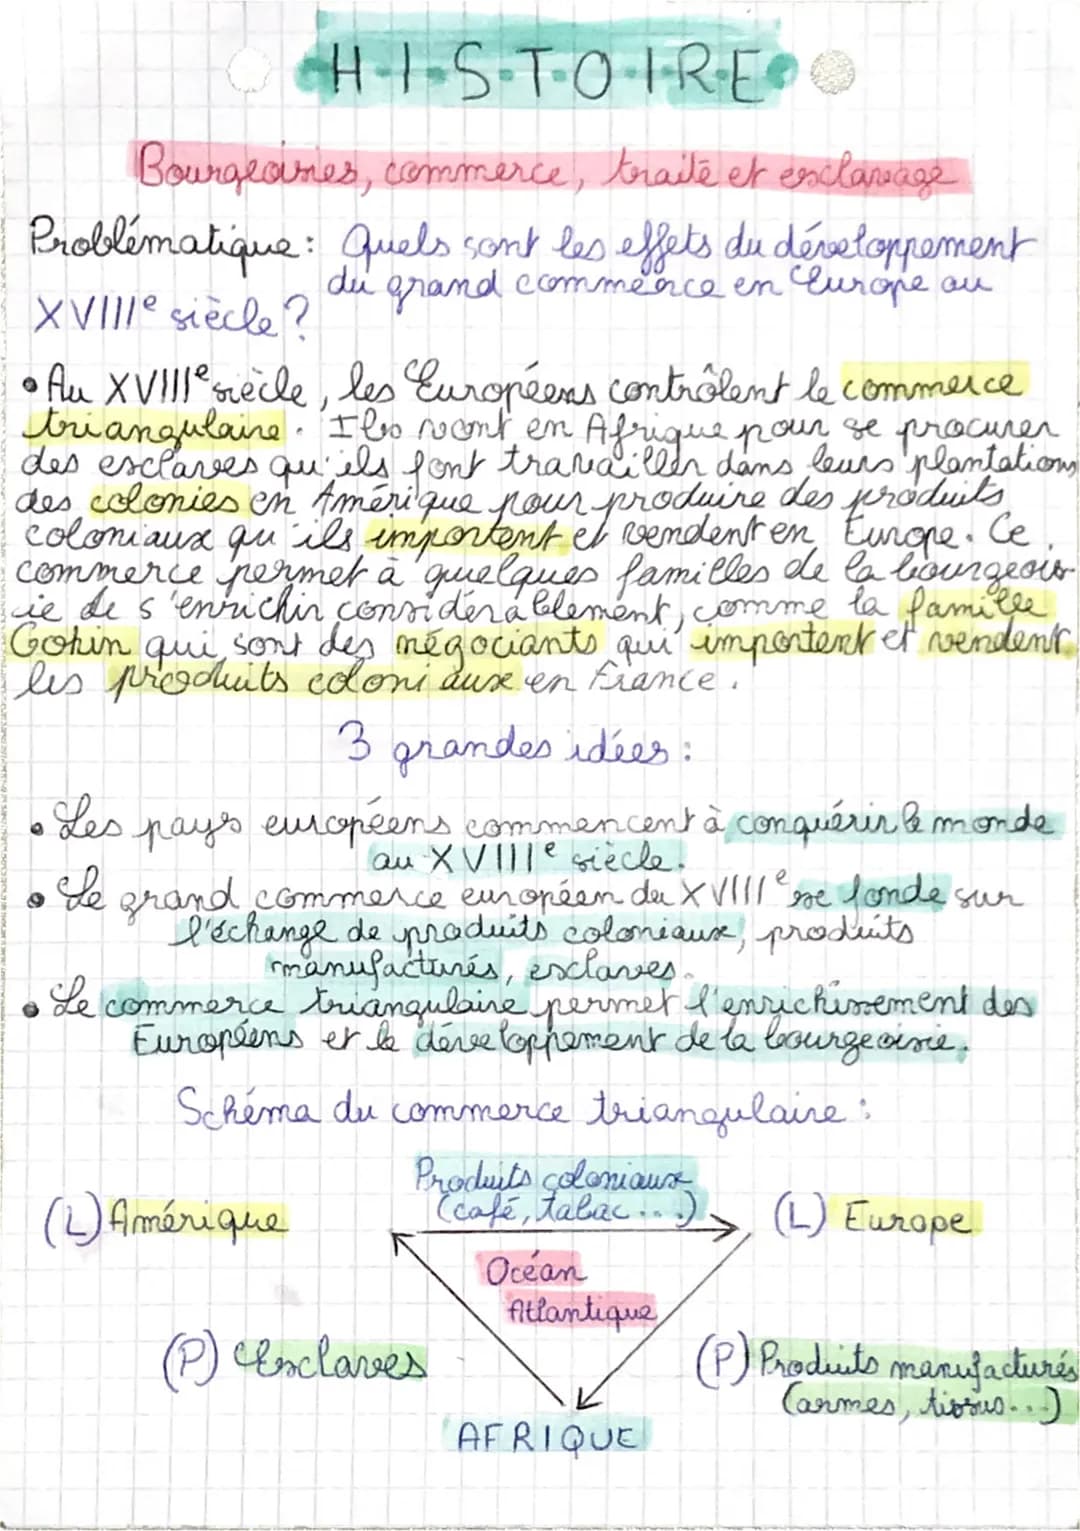 HISTOIRE
Bourgeoisies, commerce, traite et esclavage
Problématique: Quels sont les effets du développement
du grand commerce en Europe au
XVIIIe siècle?
• Au XVIIIe siècle, les Européens contrôlent le commerce
triangulaire. Ils vont en Afrique pour se procurer
des esclaves qu'ils font travailler dans leurs plantations
des colonies en Amérique pour produire des produits
coloniaux qu'ils importent et vendent en Europe. Ce
commerce permet à quelques familles de la bourgeois-
ie de s'enrichir considérablement, comme la famille
Gohin qui sont des négociants qui importent et vendent
les produits coloniaux en France.
3 grandes idées:
• Les pays européens commencent à conquérir le monde
au XVIIIe siècle.
• Le grand commerce européen du XVIIIe se fonde sur
l'échange de produits coloniaux, produits
manufacturés, esclaves.
• Le commerce triangulaire permet l'enrichissement des
Européens et le développement de la bourgeoisie.
Schéma du commerce triangulaire:
Produits coloniaux
(café, tabac...)
(L) Amérique
(L) Europe
Océan
Atlantique
(P) Esclaves
(P) Produits manufacturés
(armes, tissus...)
AFRIQUE